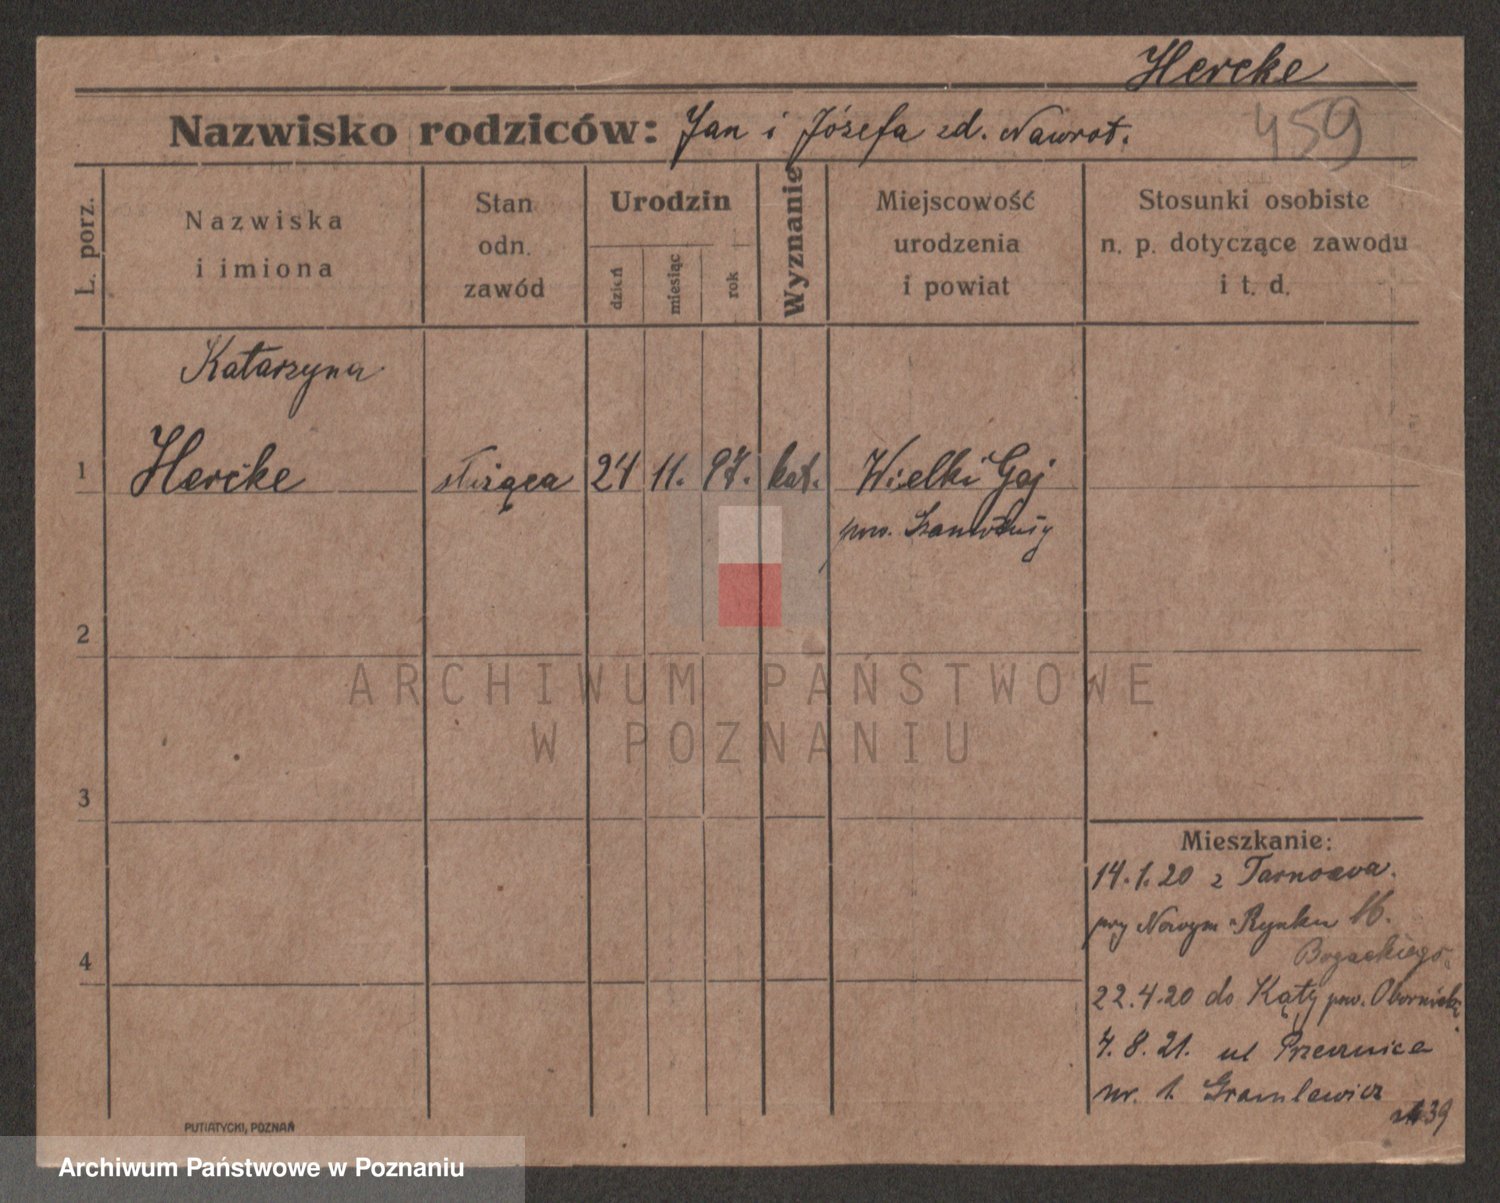 Hercke
Nazwisko rodziców: Jan i Józefa zd. Nawrot.
459
L. porz.
Nazwiska
i imiona
Stan
odn.
zawód
Urodzin
dzień
miesiąc
rok
Wyznanie
Miejscowość
urodzenia
i powiat
Stosunki osobiste
n. p. dotyczące zawodu
i t. d.
Katarzyna
1 Hercke służąca 24 11. 97. kat. Wielki Gaj
pow.
2
3
4
ARCHIWUM PAŃSTWOWE
W POZNANIU
Mieszkanie:
14.1.20 z Tarnowa.
przy Nowym Rynku 16.
Bogackiego.
22.4.20 do Kąty pow. Obornicki
4.8.21. ul Przecznica
nr. 1.
39
PUTIATYCKI, POZNAŃ
Archiwum Państwowe w Poznaniu